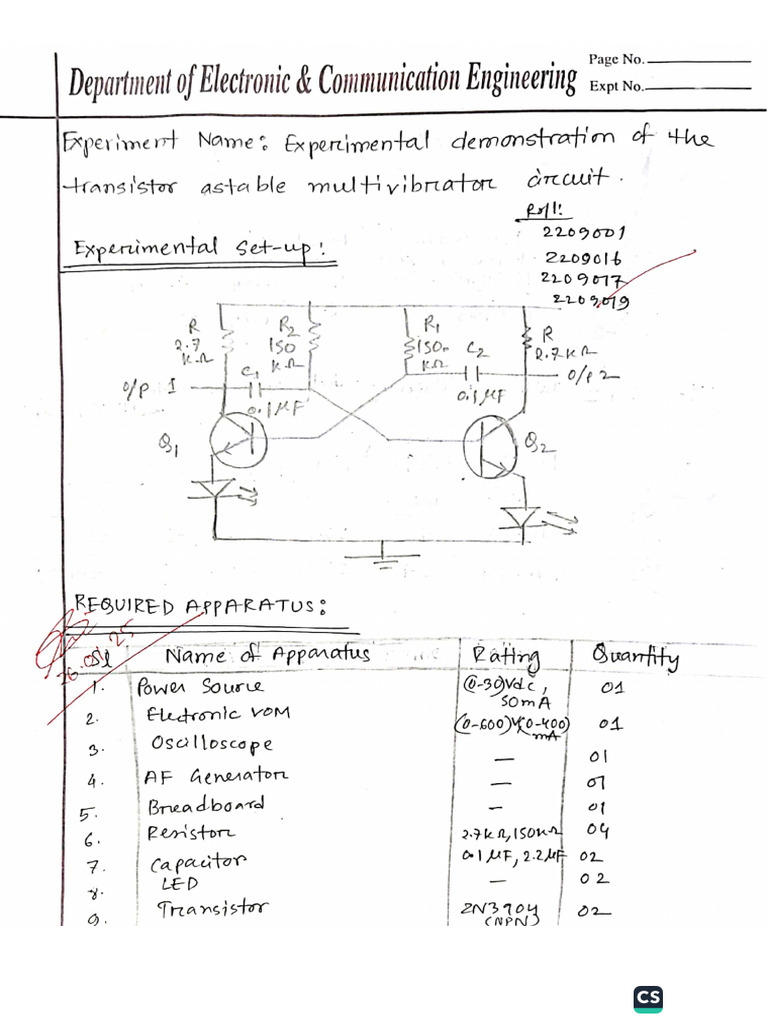 Page No.
Department of Electronic & Communication Engineering
Expt No.
Experiment Name: Experimental demonstration of the
transistor astable multivibrator circuit.
Roll:
2209001
2209016
2209017
2209019
Experimental Set-up:
R
2.7
KΩ
R2
150
KΩ
R1
150
KΩ
R
2.7KΩ
C1
0.1μF
C2
0.1μF
O/P 1
O/P 2
Q1
Q2
REQUIRED APPARATUS:
Sl Name of Apparatus Rating Quantity
1. Power Source (0-30)Vdc, 50mA 01
2. Electronic VOM (0-600)V,(0-400) mA 01
3. Oscilloscope — 01
4. AF Generator — 01
5. Breadboard — 01
6. Resistor 2.7KΩ, 150KΩ 04
7. Capacitor 0.1μF, 2.2μF 02
8. LED — 02
9. Transistor 2N3904 (NPN) 02
CS